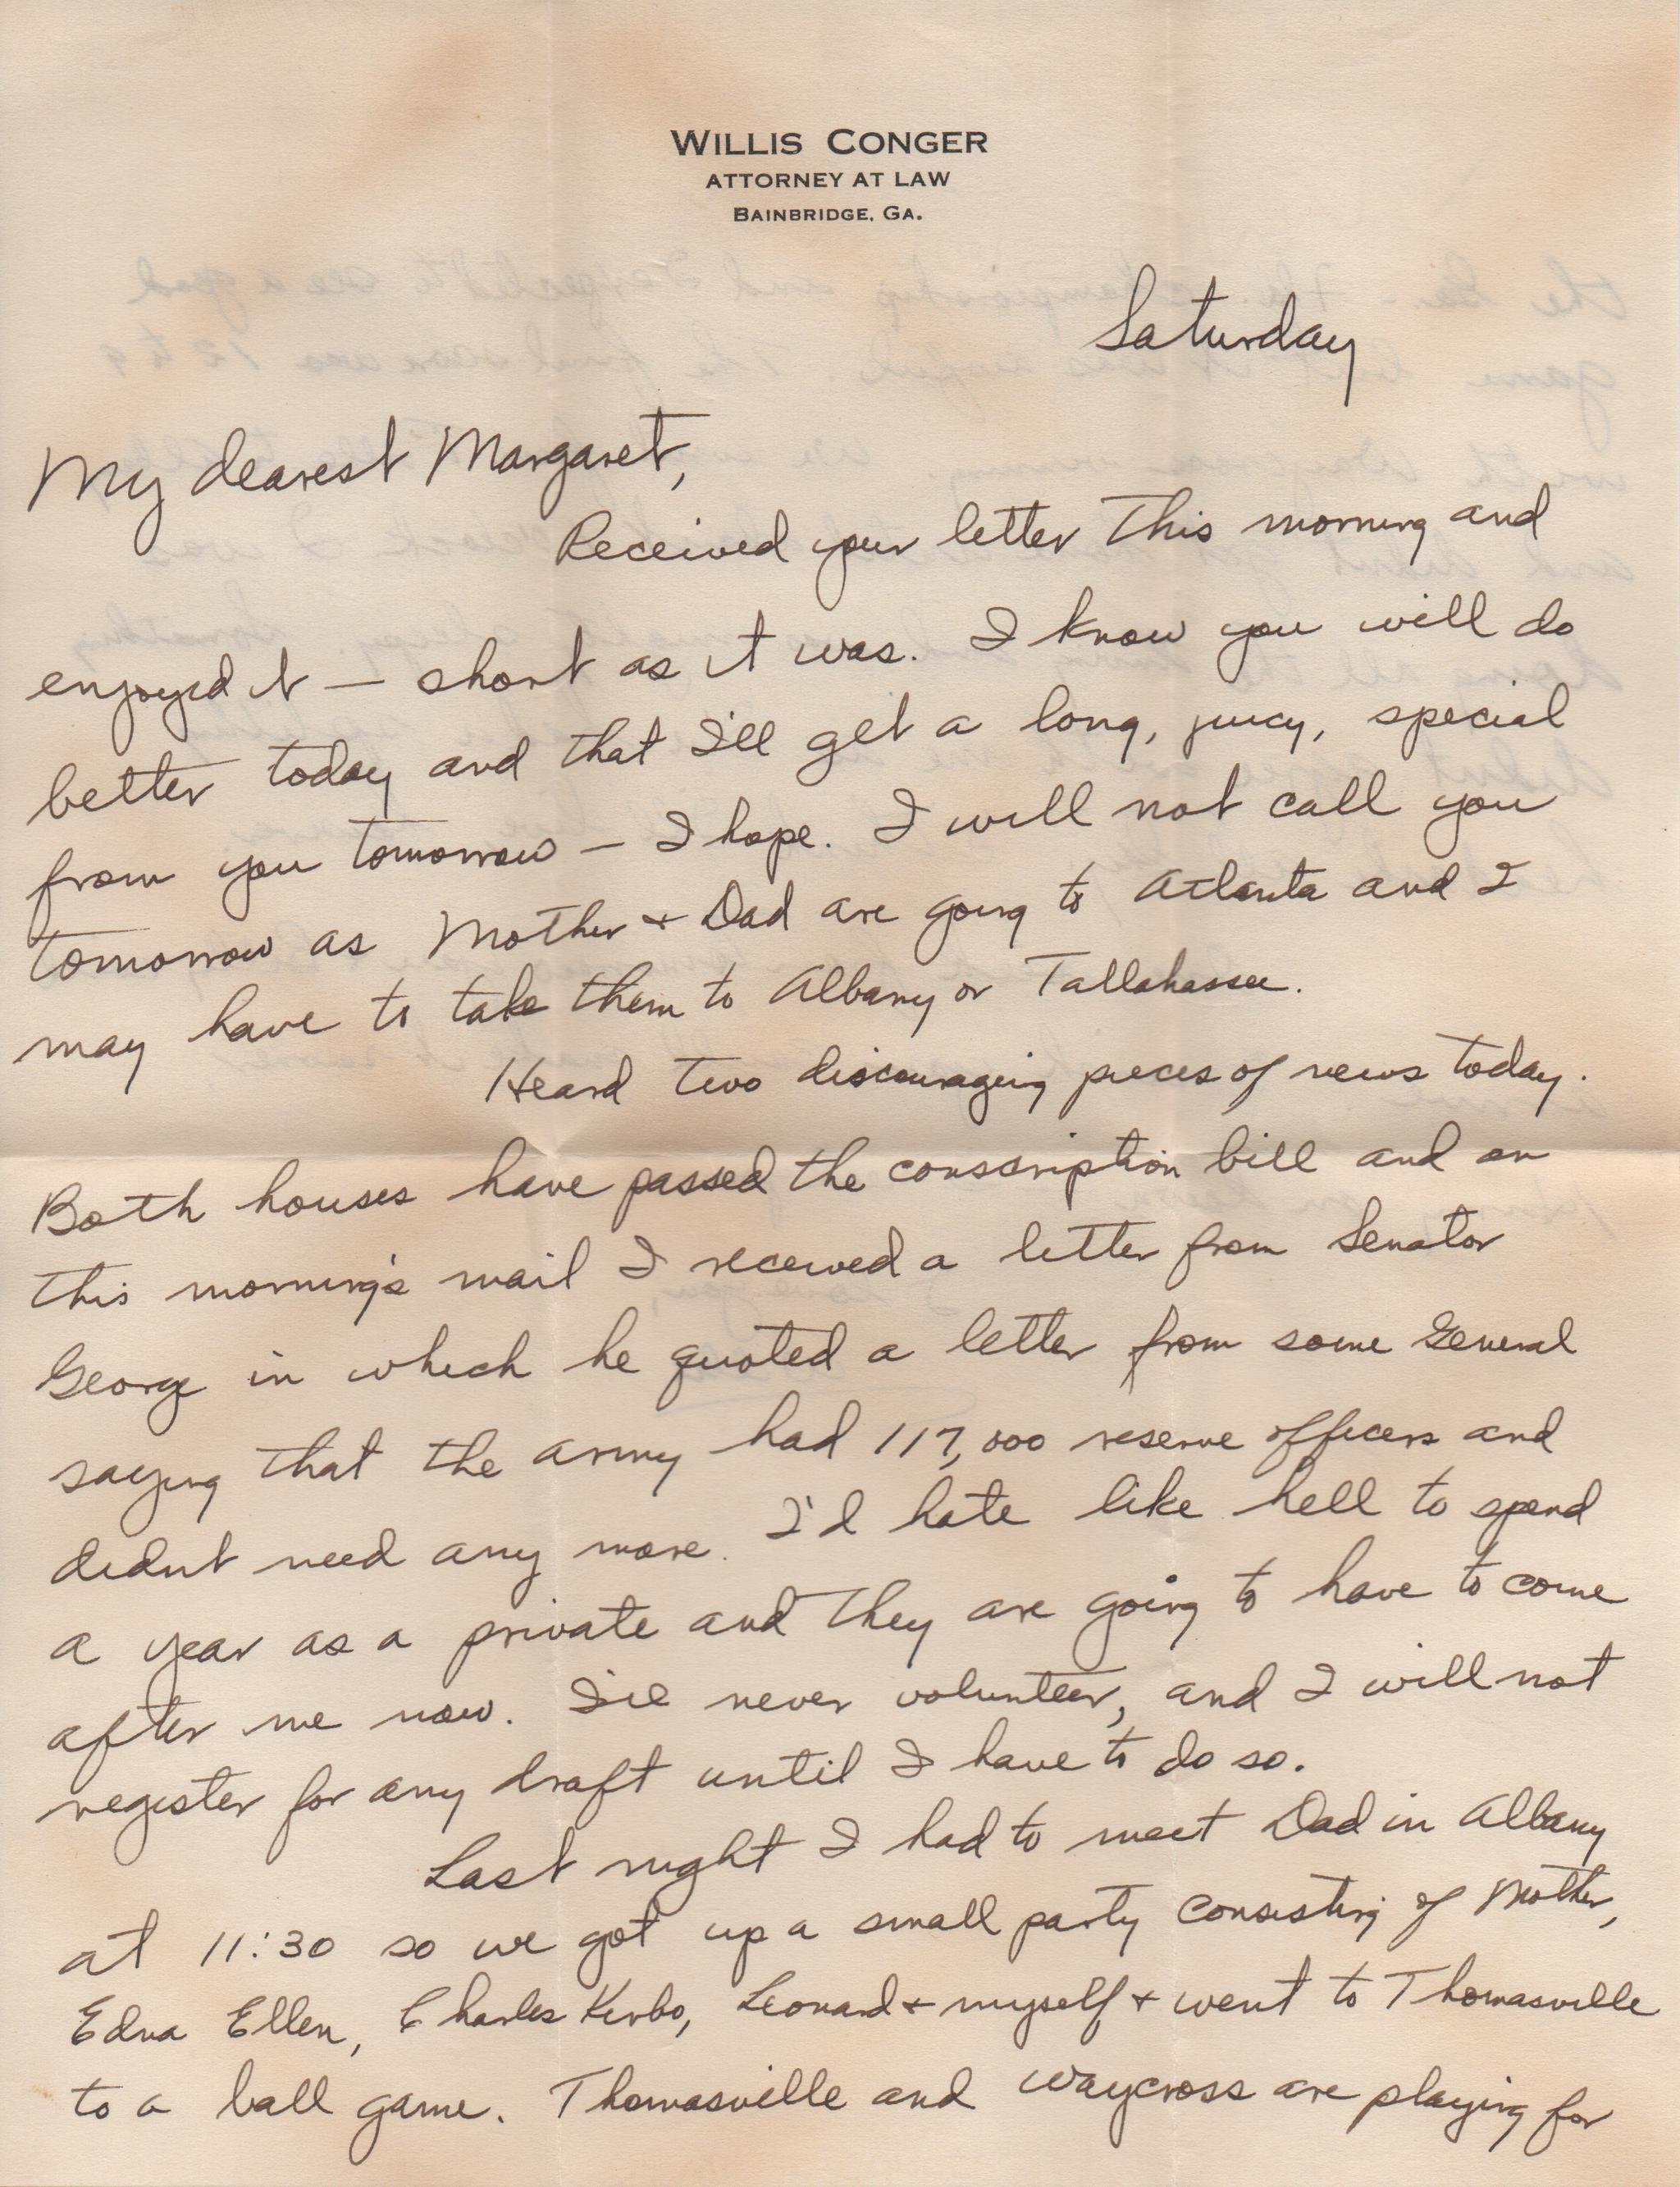 WILLIS CONGER
ATTORNEY AT LAW
BAINBRIDGE, GA.
Saturday
My dearest Margaret,
Received your letter this morning and
enjoyed it — short as it was. I know you will do
better today and that I'll get a long, juicy, special
from you tomorrow — I hope. I will not call you
tomorrow as Mother + Dad are going to Atlanta and I
may have to take them to Albany or Tallahassee.
Heard two discouraging pieces of news today.
Both houses have passed the conscription bill and on
this morning's mail I received a letter from Senator
George in which he quoted a letter from some General
saying that the army had 117,000 reserve officers and
didnt need any more. I'd hate like hell to spend
a year as a private and they are going to have to come
after me now. I'll never volunteer, and I will not
register for any draft until I have to do so.
Last night I had to meet Dad in Albany
at 11:30 so we got up a small party consisting of Mother,
Edna Ellen, Charles Kirbo, Leonard + myself + went to Thomasville
to a ball game. Thomasville and Waycross are playing for